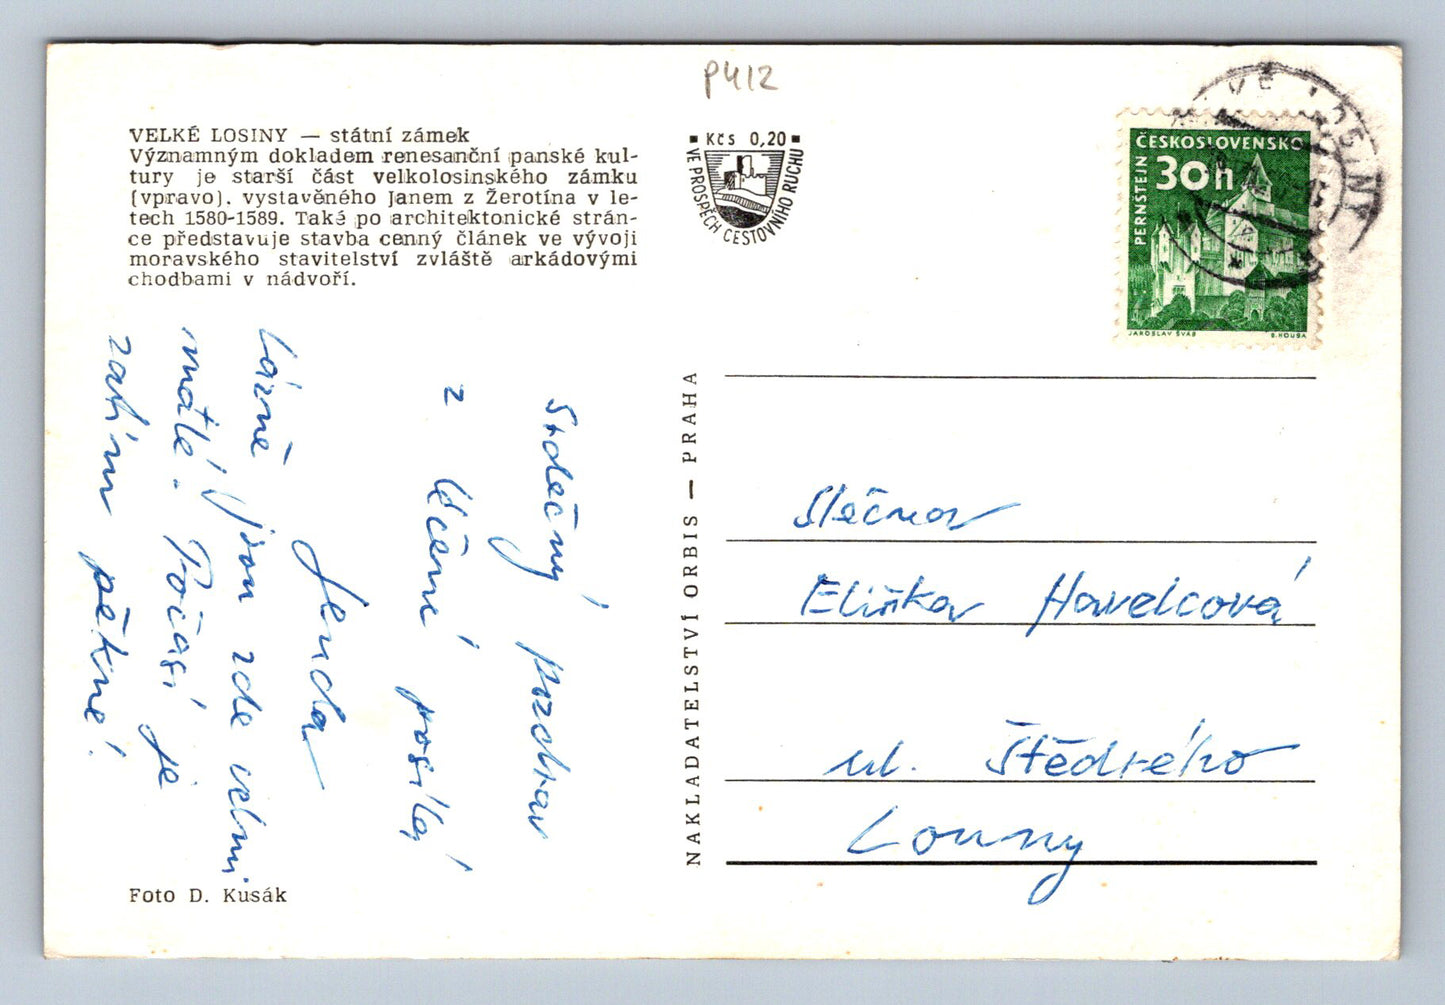 P412
VELKÉ LOSINY — státní zámek
Významným dokladem renesanční panské kul-
tury je starší část velkolosinského zámku
(vpravo), vystavěného Janem z Žerotína v le-
tech 1580-1589. Také po architektonické strán-
ce představuje stavba cenný článek ve vývoji
moravského stavitelství zvláště arkádovými
chodbami v nádvoří.
Kčs 0,20
VE PROSPĚCH CESTOVNÍHO RUCHU
ČESKOSLOVENSKO
30h
PERNŠTEJN
JAROSLAV ŠVÁB
B. HOUSA
LOSINY
Srdečný pozdrav
z léčení posílá
Jenda
Lázně jsou zde velmi
malé. Počasí je
zatím pěkné!
NAKLADATELSTVÍ ORBIS — PRAHA
Slečna
Eliška Havelcová
ul. Štědrého
Louny
Foto D. Kusák